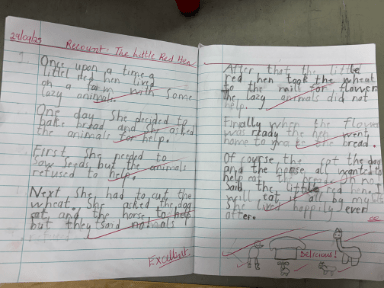 24/04/25
Recount The Little Red Hen
Once upon a time a
little red hen lived
on a farm with some
lazy animals.
One day She decided to
bake bread and She asked
the animals for help.
First She needed to
Sow Seeds, but the animals
refused to help.
Next She had to cut the
wheat. She asked the dog
cat and the horse to help
but they said no
Excellent
After that the little
red hen took the wheat
to the mill for flower
the lazy animals did not
help.
Finally when the flower
was ready the hen went
home to make the bread.
Of course the cat the dog
and the horse all wanted
Said the little red hen I
will eat it all by myself
She lived happily ever
after.